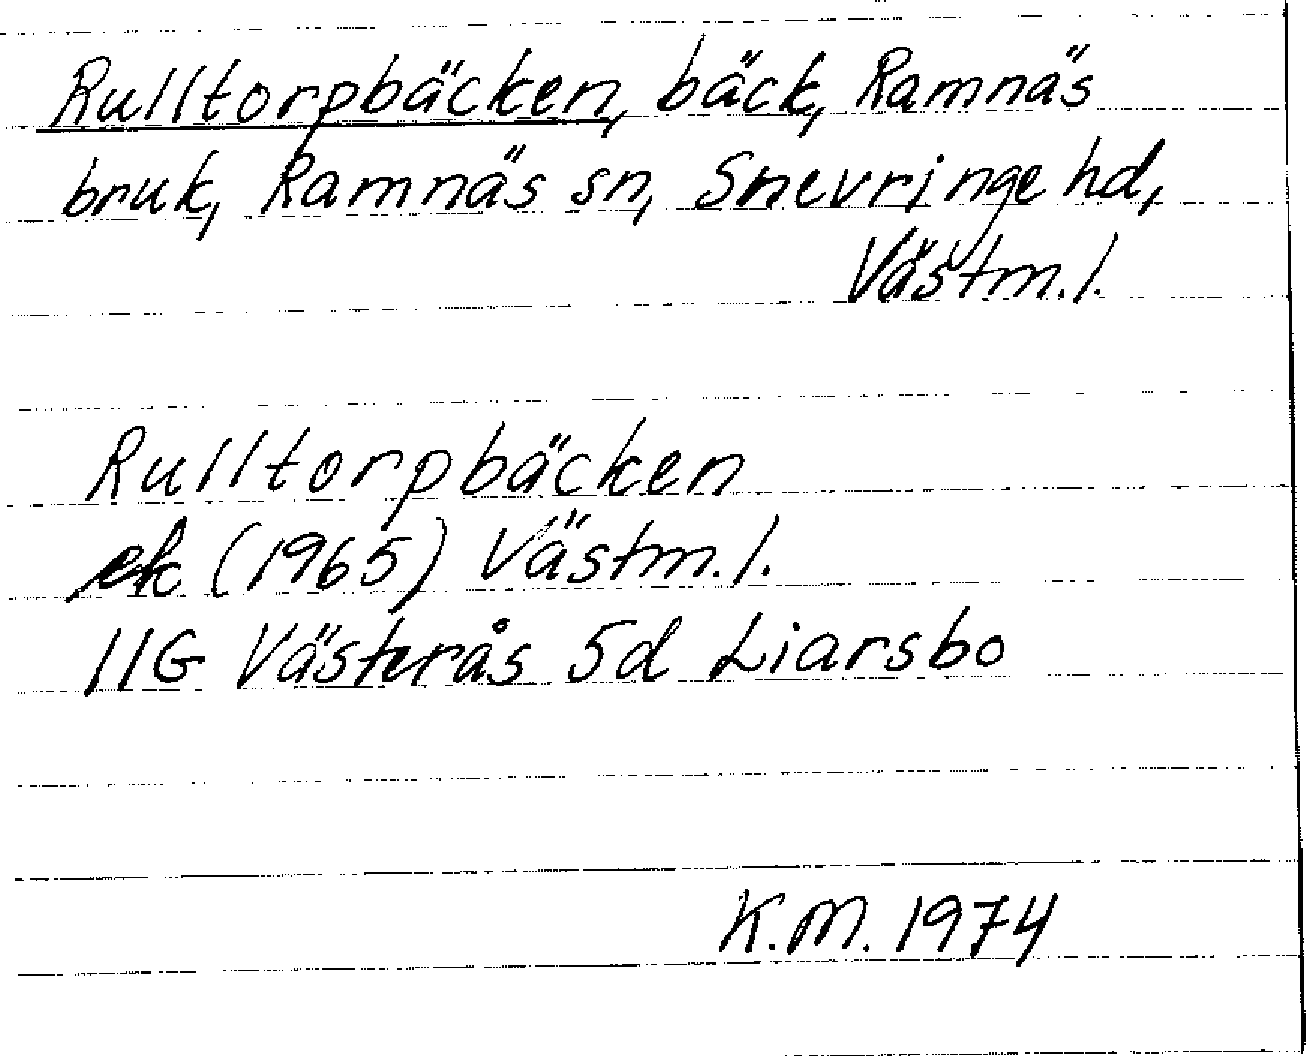 Rulltorpbäcken, bäck, Ramnäs
bruk, Ramnäs sn, Snevringe hd,
Västm.l.
Rulltorpbäcken
ek (1965) Västm.l.
11G Västerås 5d Liarsbo
K.M. 1974